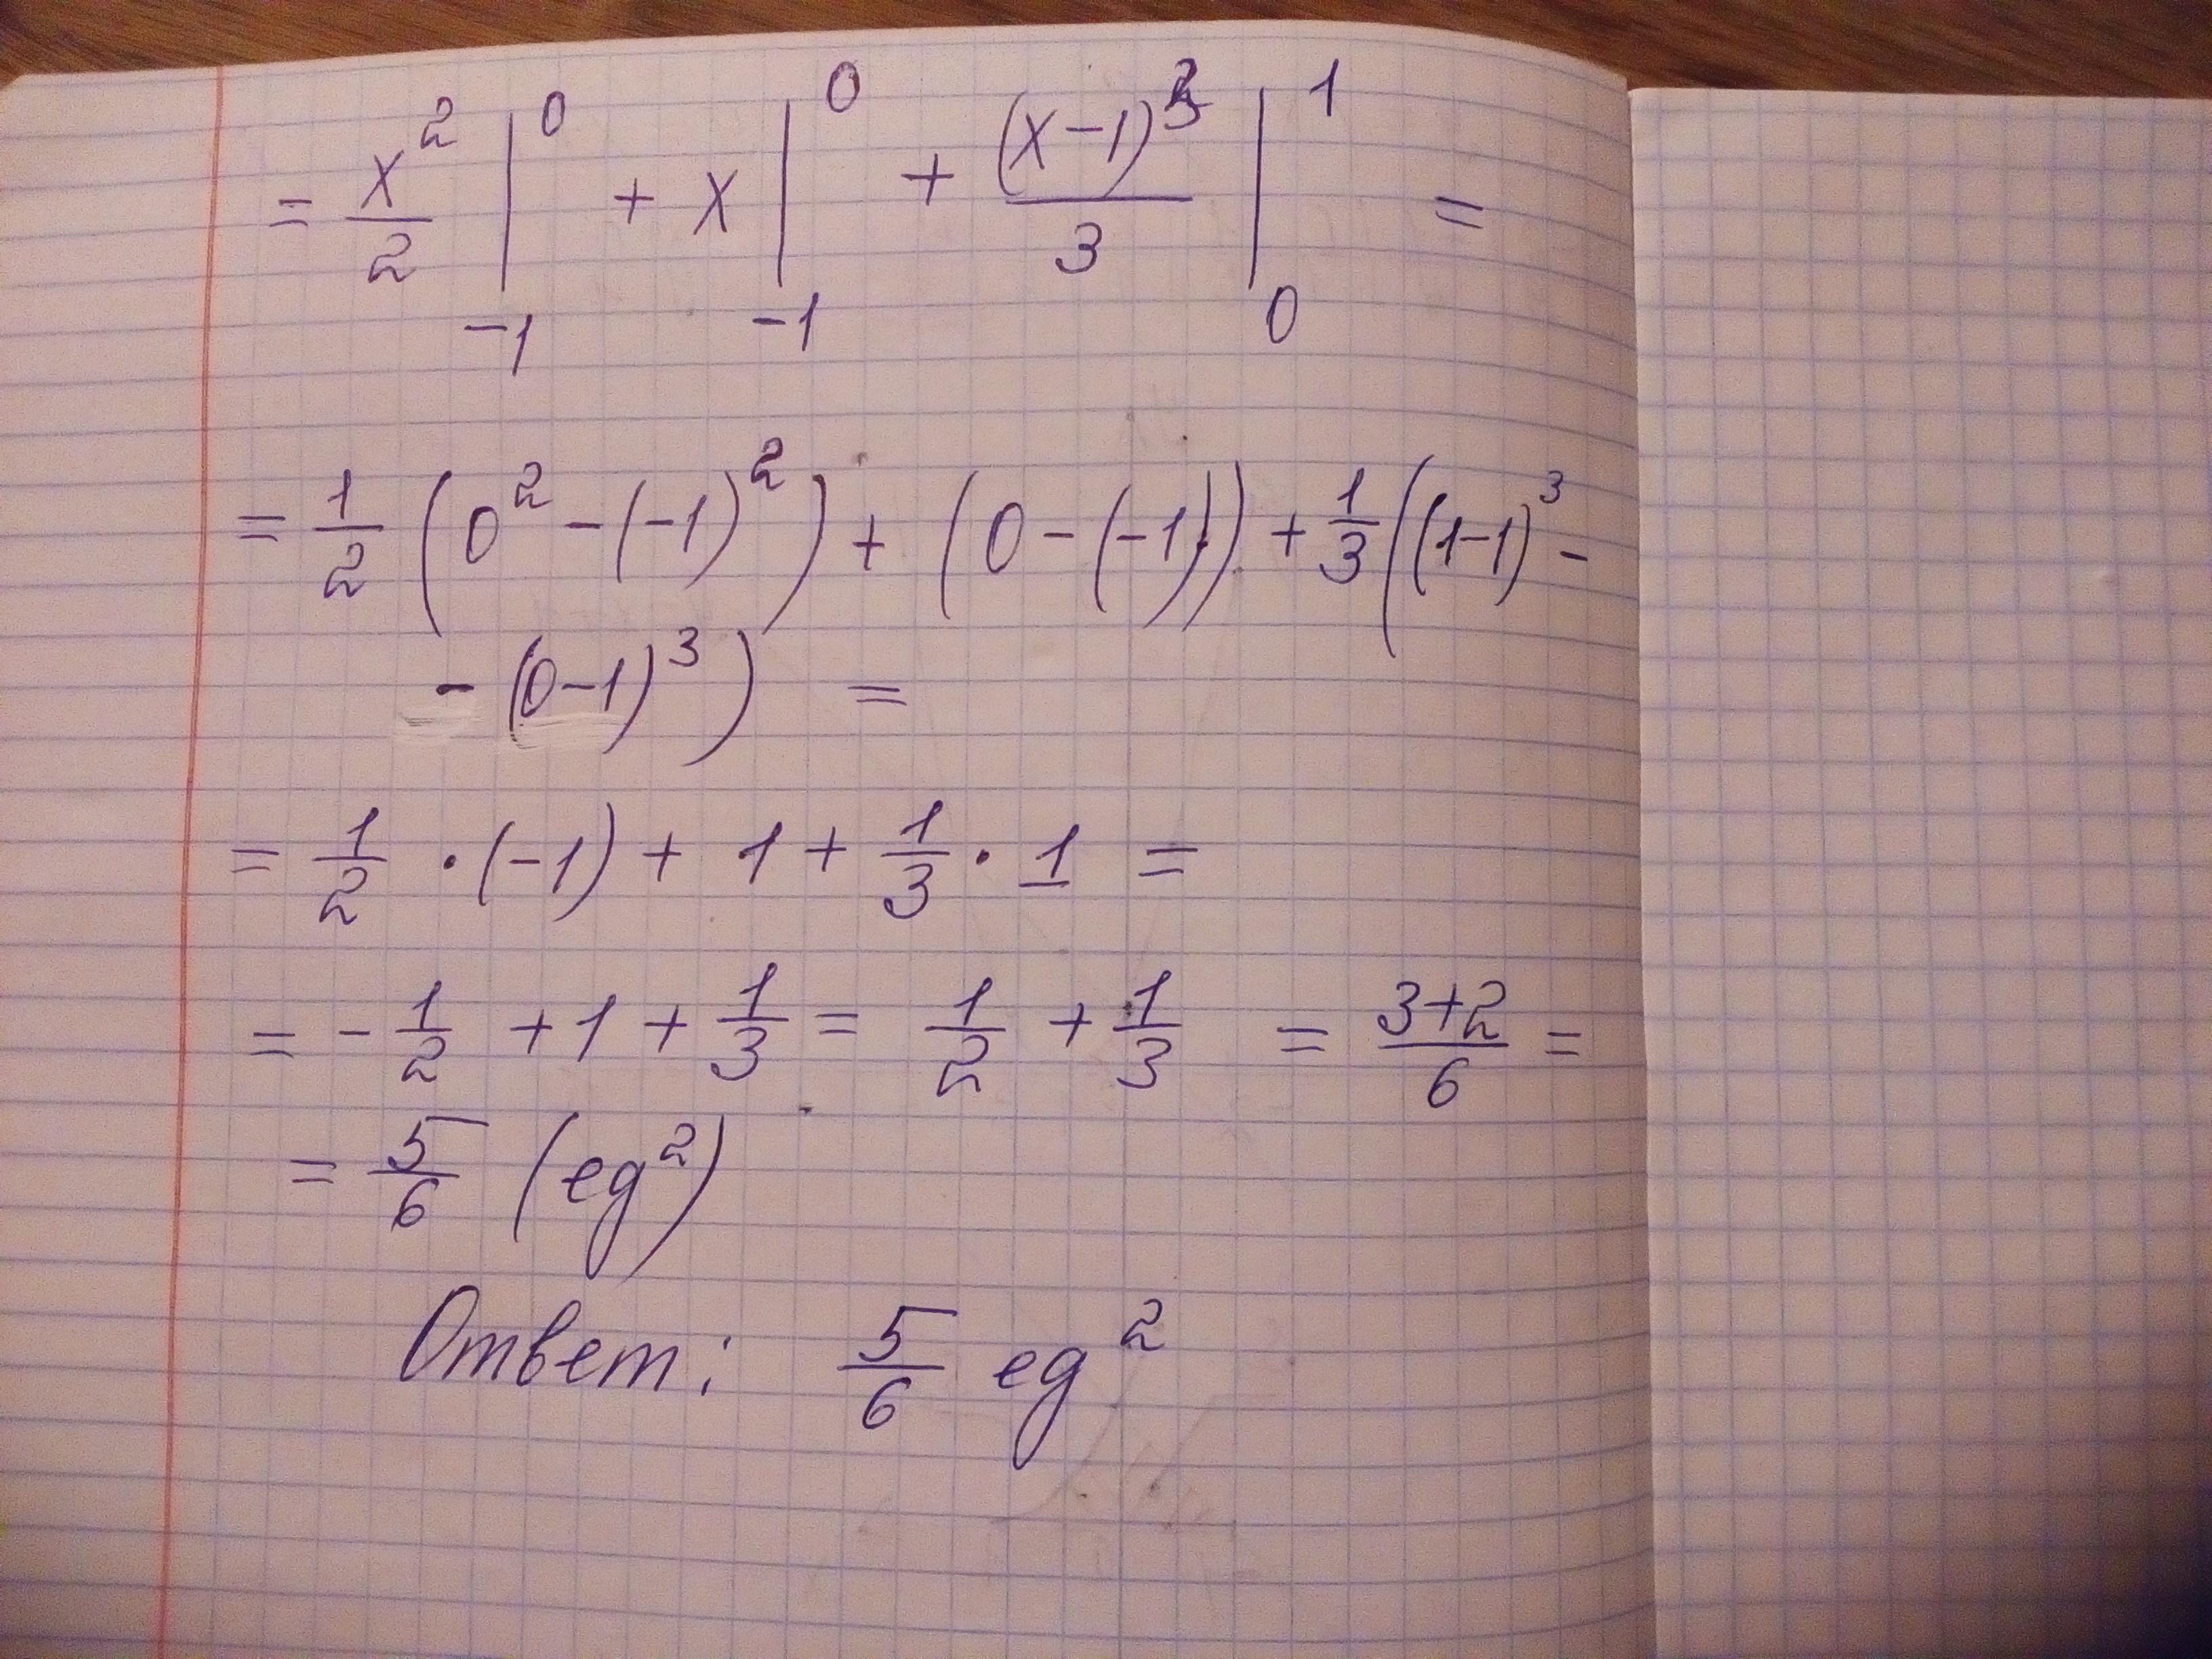 = x²/2 |₋₁⁰ + x |₋₁⁰ + (x-1)³/3 |₀¹ =
= 1/2 (0² - (-1)²) + (0 - (-1)) + 1/3 ((1-1)³ -
- (0-1)³) =
= 1/2 · (-1) + 1 + 1/3 · 1 =
= - 1/2 + 1 + 1/3 = 1/2 + 1/3 = 3+2/6 =
= 5/6 (ед²)
Ответ: 5/6 ед²